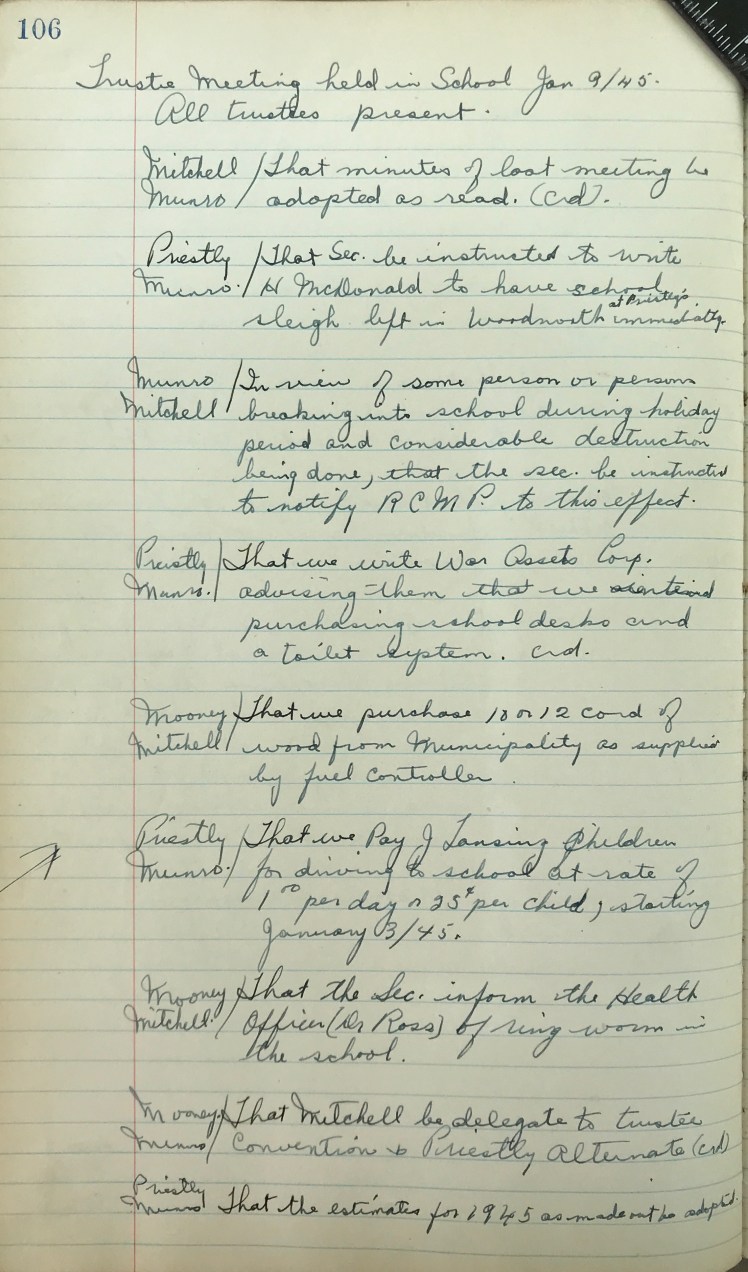 106
Trustee Meeting held in School Jan 9/45.
All trustees present.
Mitchell / That minutes of last meeting be
Munro / adopted as read. (crd).
Priestly / That Sec. be instructed to write
Munro. / H McDonald to have school
sleigh left in Woodnorth at Priestly's immediatly.
Munro / In view of some person or persons
Mitchell breaking into school during holiday
period and considerable destruction
being done, that the sec. be instructed
to notify R C M P. to this effect.
Preistly / That we write War Assets Corp.
Munro. / advising them that we
purchasing school desks and
a toilet system. crd.
Mooney / That we purchase 10 or 12 cord of
Mitchell / wood from Municipality as supplied
by fuel controller.
Priestly / That we Pay J Lansing Children
Munro. / for driving to school at rate of
1.00 per day or 25¢ per child, starting
January 3/45.
Mooney / That the Sec. inform the Health
Mitchell. / Officer (Dr Ross) of ring worm in
the school.
Mooney / That Mitchell be delegate to trustee
Munro / Convention & Priestly Alternate (crd)
Priestly
Munro That the estimates for 1945 as made out be adopted.